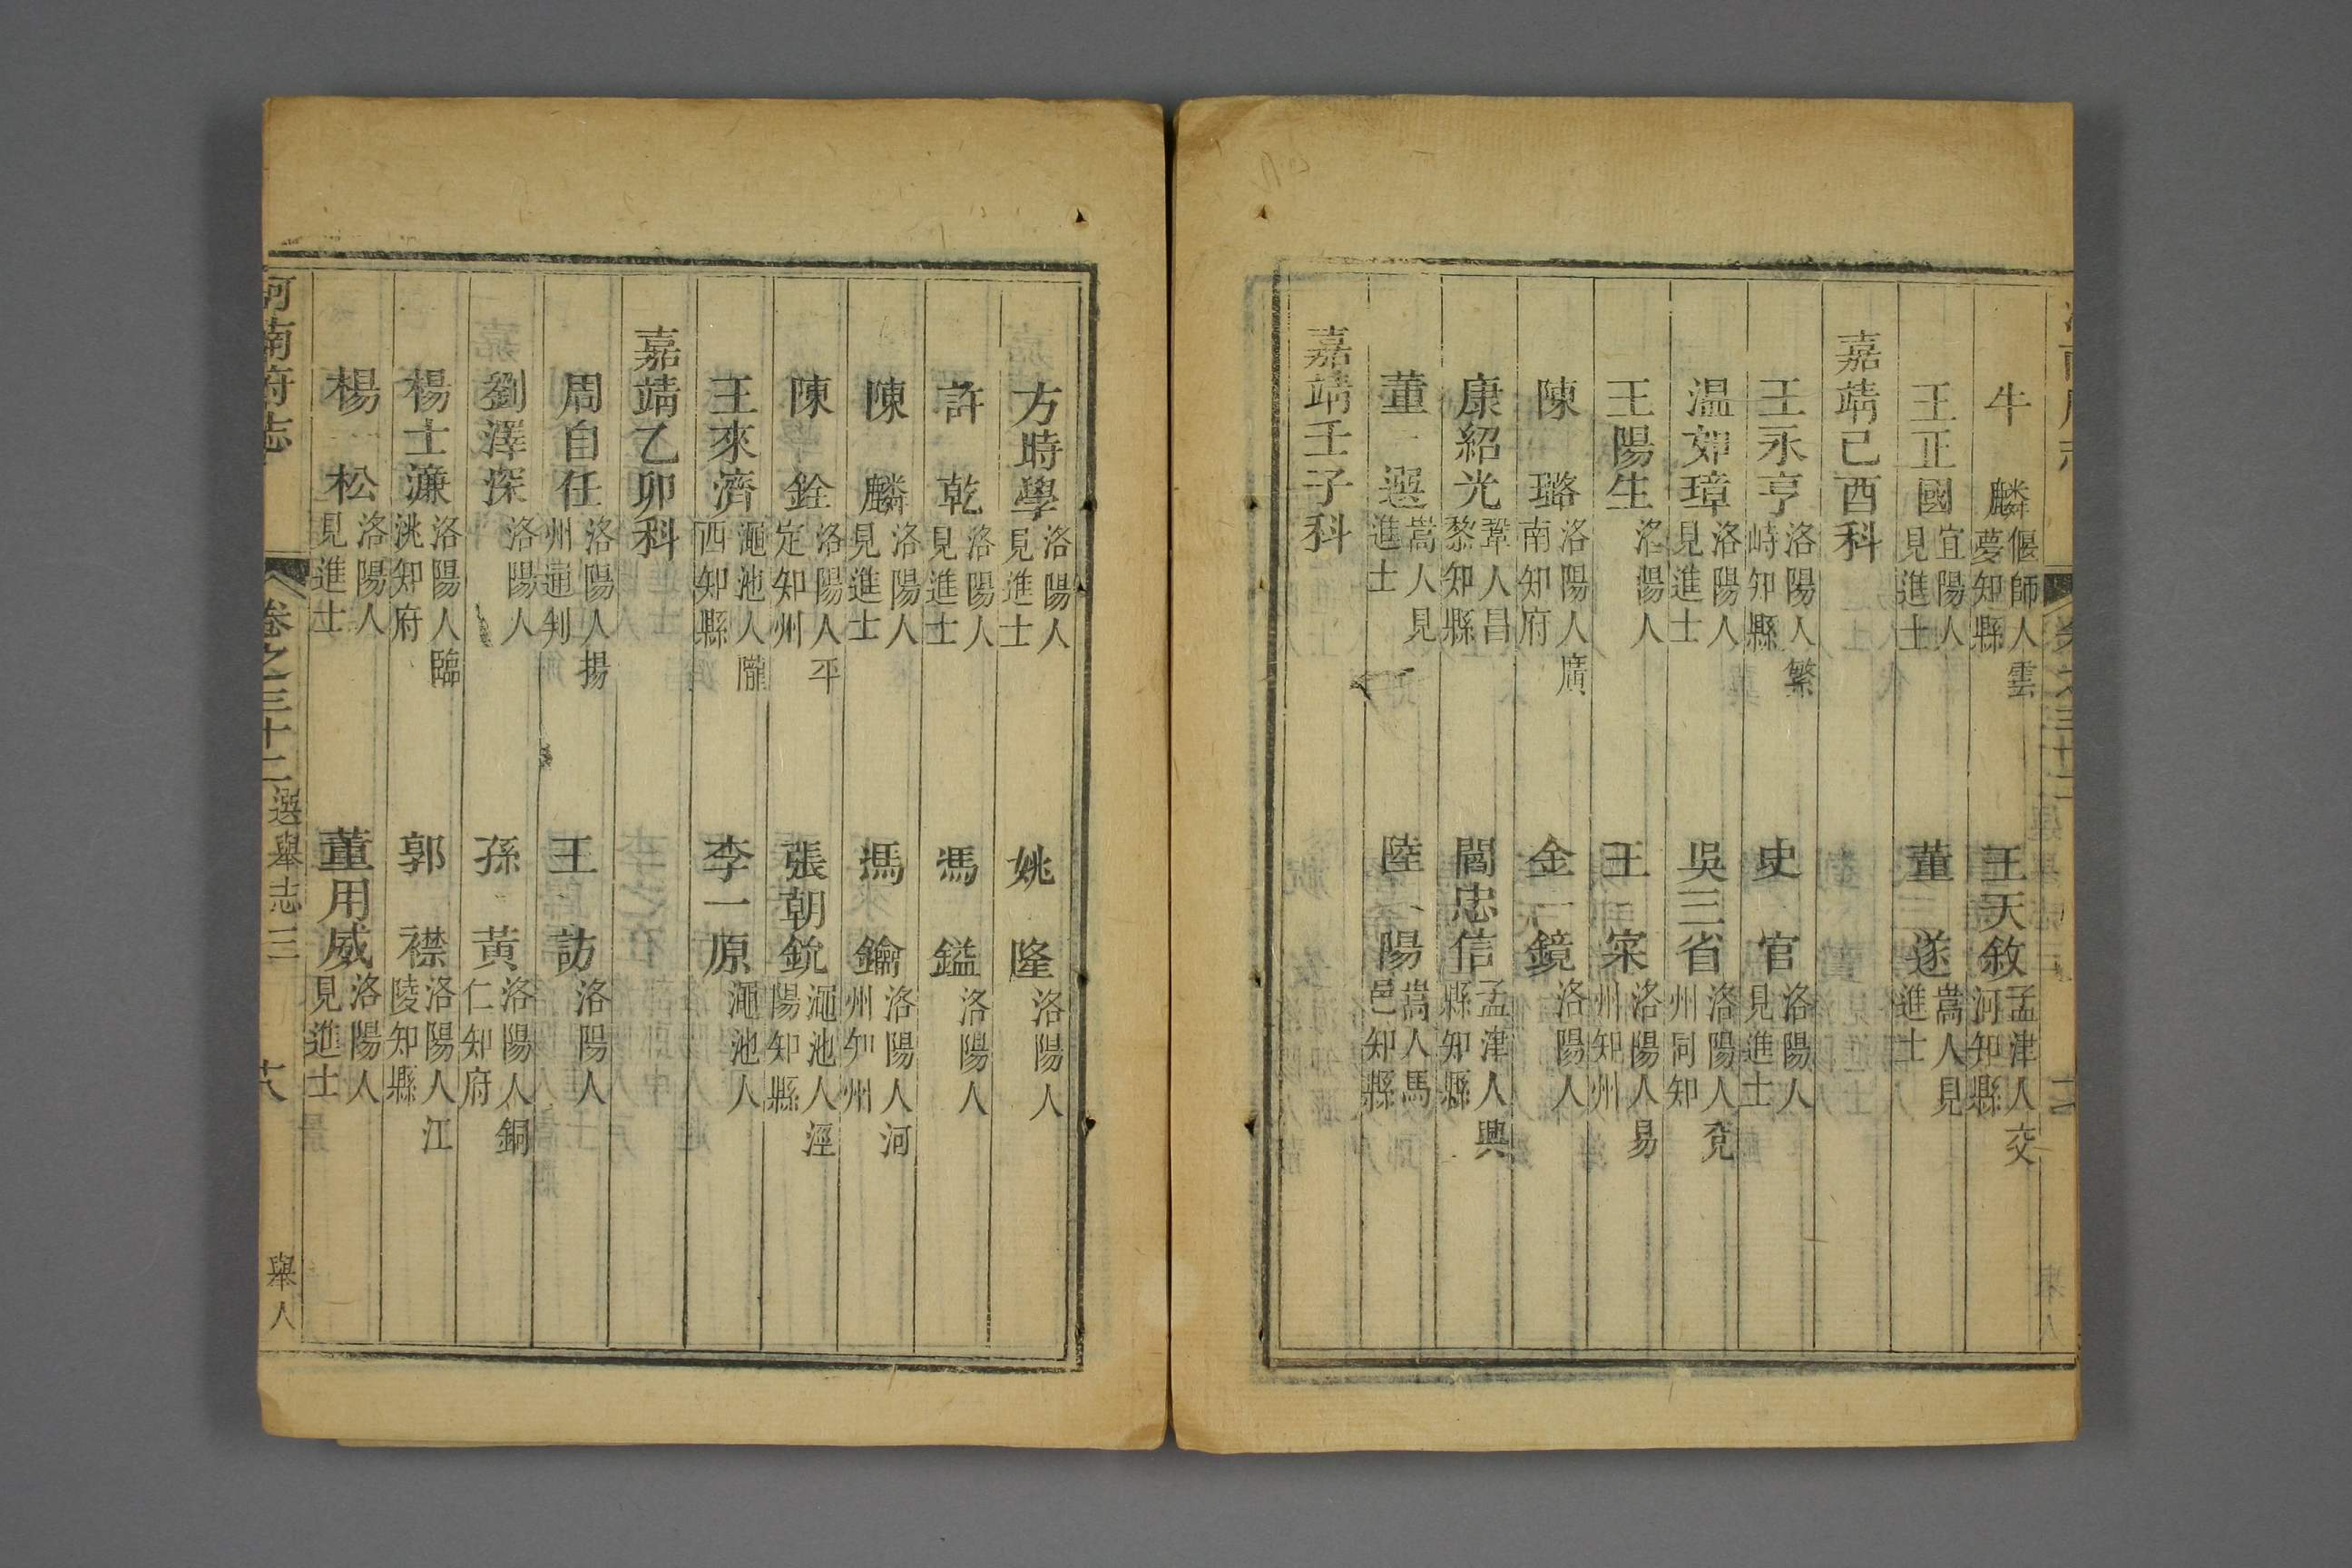 牛麟偃師人雲夢知縣 王天敘孟津人交河知縣
王正國宜陽人見進士 董遂嵩人見進士
嘉靖己酉科
王永亨洛陽人繁峙知縣 史官洛陽人見進士
温如璋洛陽人見進士 吳三省洛陽人兗州同知
王陽生洛陽人 王寀洛陽人易州知州
陳璐洛陽人廣南知府 金一鏡洛陽人
康紹光鞏人昌黎知縣 閻忠信孟津人興縣知縣
董選嵩人見進士 陸陽嵩人馬邑知縣
嘉靖壬子科
方時學洛陽人見進士 姚隆洛陽人
許乾洛陽人見進士 馮鎰洛陽人
陳麟洛陽人見進士 馮鑰洛陽人河州知州
陳銓洛陽人平定知州 張朝銳澠池人涇陽知縣
王來濟澠池人隴西知縣 李一原澠池人
嘉靖乙卯科
周自任洛陽人揚州通判 王訪洛陽人
劉澤深洛陽人 孫黃洛陽人銅仁知府
楊士濂洛陽人臨洮知府 郭襟洛陽人江陵知縣
楊松洛陽人見進士 董用威洛陽人見進士
河南府志 卷之三十二選舉志三 舉人